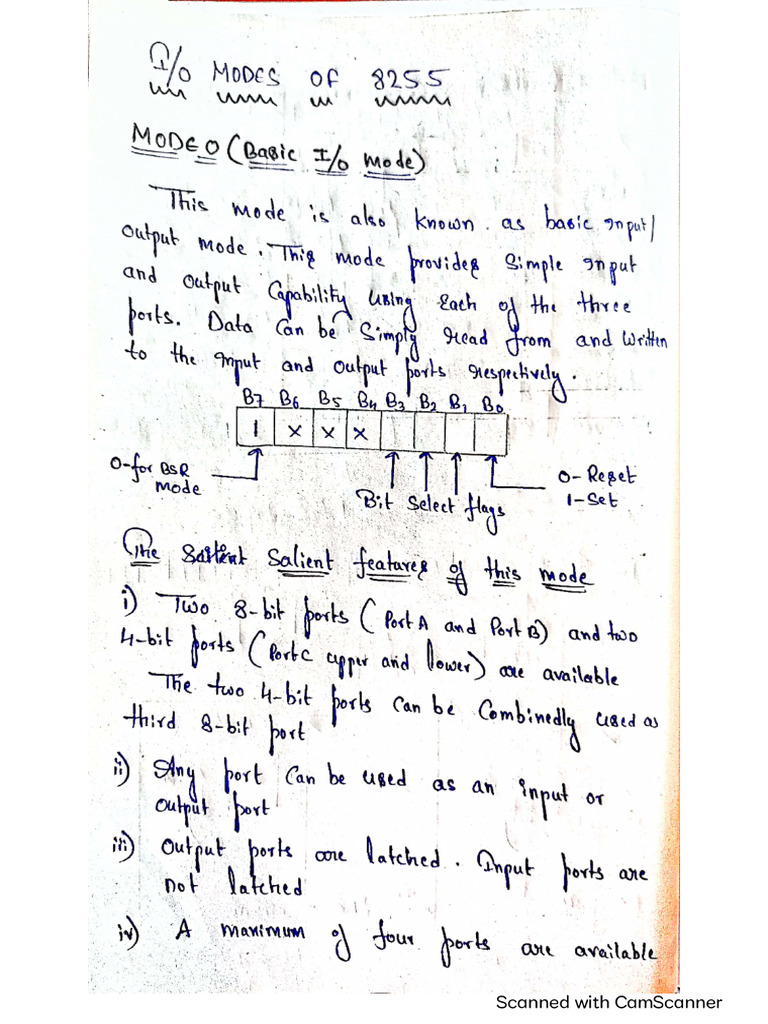 I/O MODES OF 8255
MODE 0 (Basic I/O mode)
This mode is also known as basic Input/
output mode. This mode provides Simple Input
and output Capability using Each of the three
ports. Data Can be Simply read from and written
to the Input and output ports respectively.
B7 B6 B5 B4 B3 B2 B1 B0
1 x x x
0-for BSR
mode
Bit Select flags
0-Reset
1-Set
The Salient features of this mode
i) Two 8-bit ports (Port A and Port B) and two
4-bit ports (Port C upper and lower) are available
The two 4-bit ports can be Combinedly used as
third 8-bit port
ii) Any port Can be used as an input or
output port
iii) Output ports are latched. Input ports are
not latched
iv) A maximum of four ports are available
Scanned with CamScanner